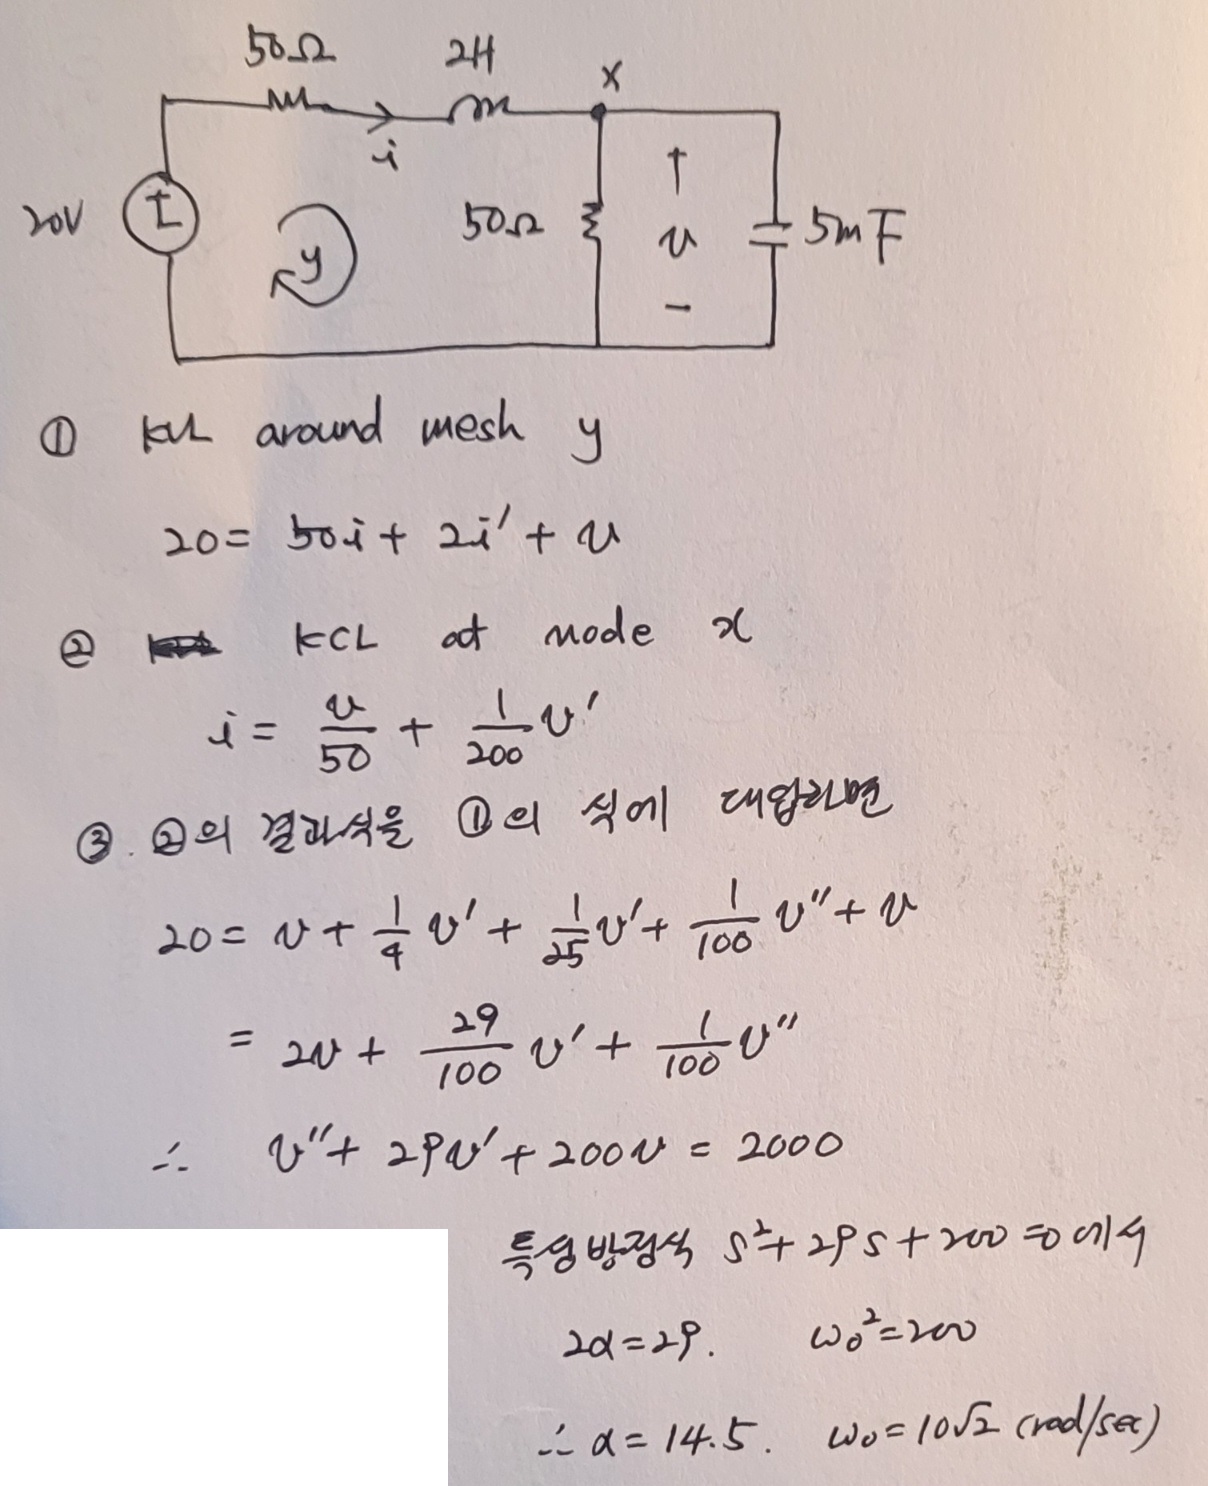 50Ω 2H x
i
20V y 50Ω + v - 5mF
① KVL around mesh y
20 = 50i + 2i' + v
② KCL at node x
i = v/50 + 1/200 v'
③. ②의 결과식을 ①의 식에 대입하면
20 = v + 1/4 v' + 1/25 v' + 1/100 v'' + v
= 2v + 29/100 v' + 1/100 v''
∴ v'' + 29v' + 200v = 2000
특성방정식 s² + 29s + 200 = 0 에서
2α = 29. ω₀² = 200
∴ α = 14.5. ω₀ = 10√2 (rad/sec)